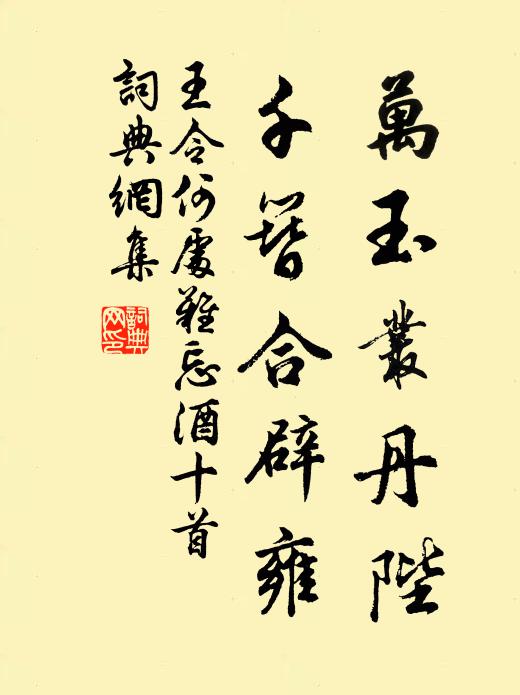 萬玉叢丹陛
千簪合辟雍
王令何處難忘酒十首
詞典網集
詞典网印